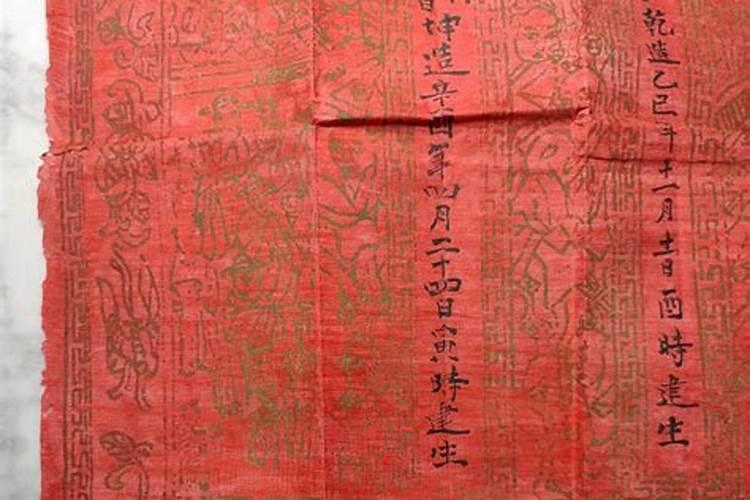 乾造乙巳年十一月十一日酉時建生
坤造辛酉年四月二十四日寅時建生